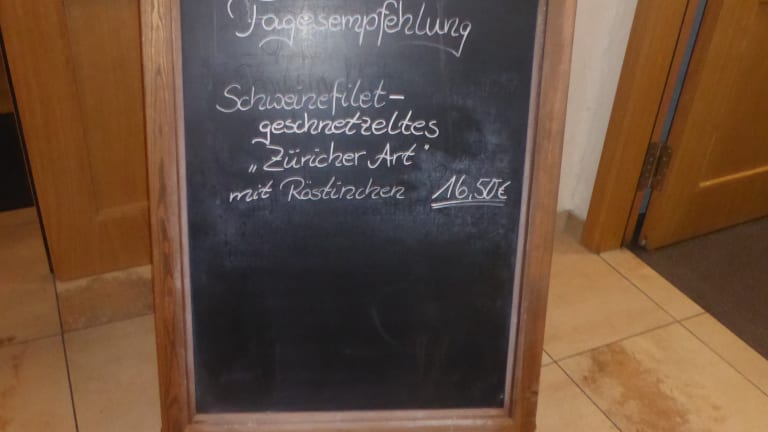 Tagesempfehlung
Schweinefilet-
geschnetzeltes
„Züricher Art"
mit Röstinchen 16,50€